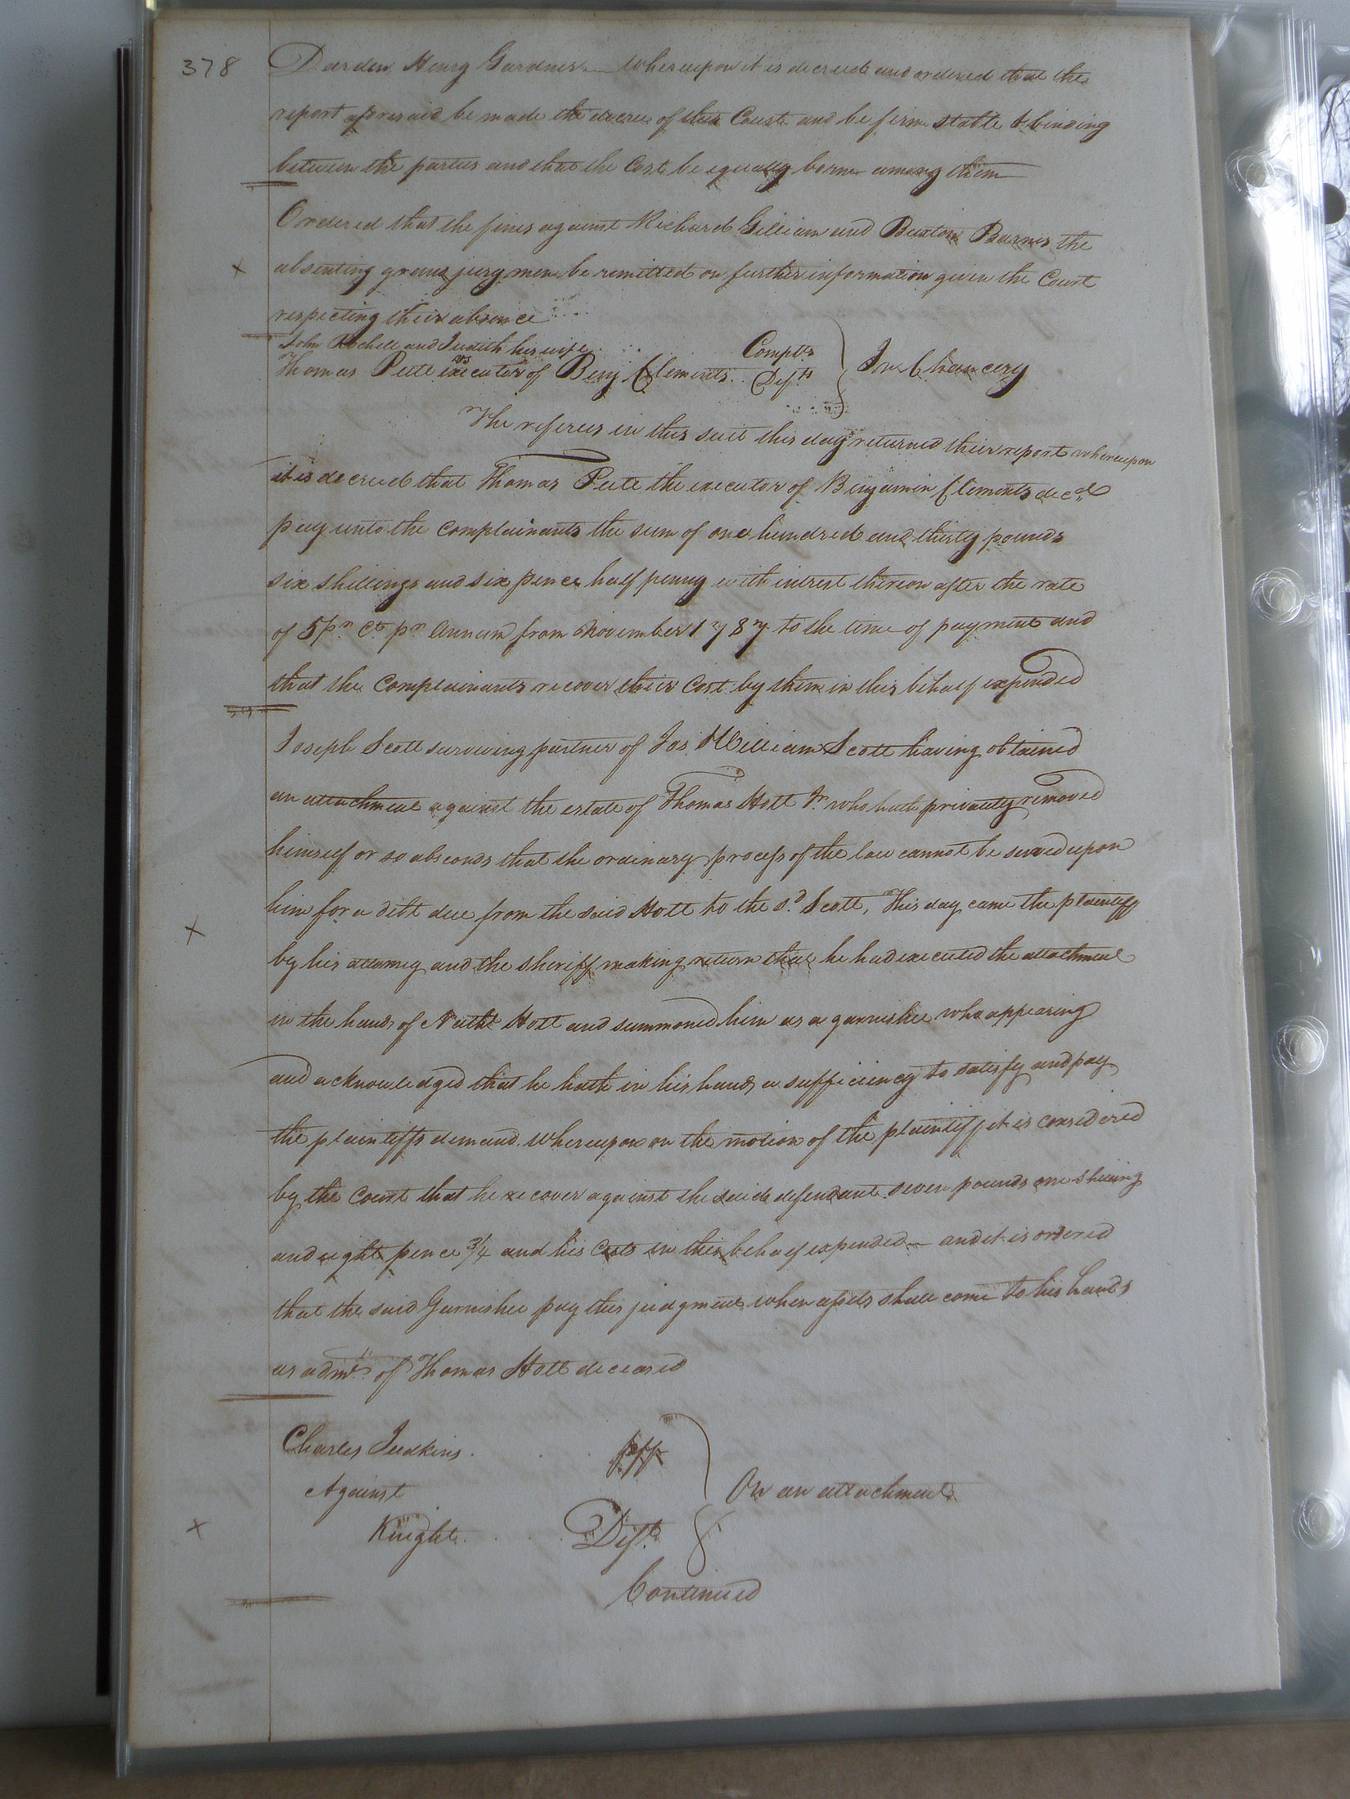 378
Darden Henry Gardner — Whereupon it is decreed and ordered that the
report aforesaid be made the decree of this Court and be firm stable & binding
between the parties and that the Cost be equally borne among them
Ordered that the fines against Richard Gilliam and Burton Barnes the
x absenting grand jury men be remitted on further information given the Court
respecting their absence
John Rochell and Judith his wife Complts
vs
Thomas Pete executor of Benj Clements Defts In Chancery
The referees in this suit this day returned their report whereupon
it is decreed that Thomas Pete the executor of Benjamin Clements decd
pay unto the complainants the sum of one hundred and thirty pounds
six shillings and six pence half penny with intrest thereon after the rate
of 5 pr Ct pr Annum from November 1787 to the time of payment and
that the Complainants recover their Cost by them in this behalf expended
Joseph Scott surviving partner of Jos William Scott having obtained
an attachment against the estate of Thomas Holt Jr who hath privately removed
himself or so absconds that the ordinary process of the law cannot be served upon
him for a debt due from the said Holt to the sd Scott, This day came the plaintiff
x by his attorney and the sheriff making return that he had executed the attachment
in the hands of Nathl Holt and summoned him as a garnishee who appearing
and acknowledged that he hath in his hands a sufficiency to satisfy and pay
the plaintiffs demand. Whereupon on the motion of the plaintiff it is considered
by the Court that he recover against the said defendant seven pounds one shilling
and eight pence 3/4 and his Costs in this behalf expended — and it is ordered
that the said Garnishee pay this judgment when assets shall come to his hands
as admr of Thomas Holt deceased
Charles Judkins plff
Against On an attachment
x Knight Deft
Continued